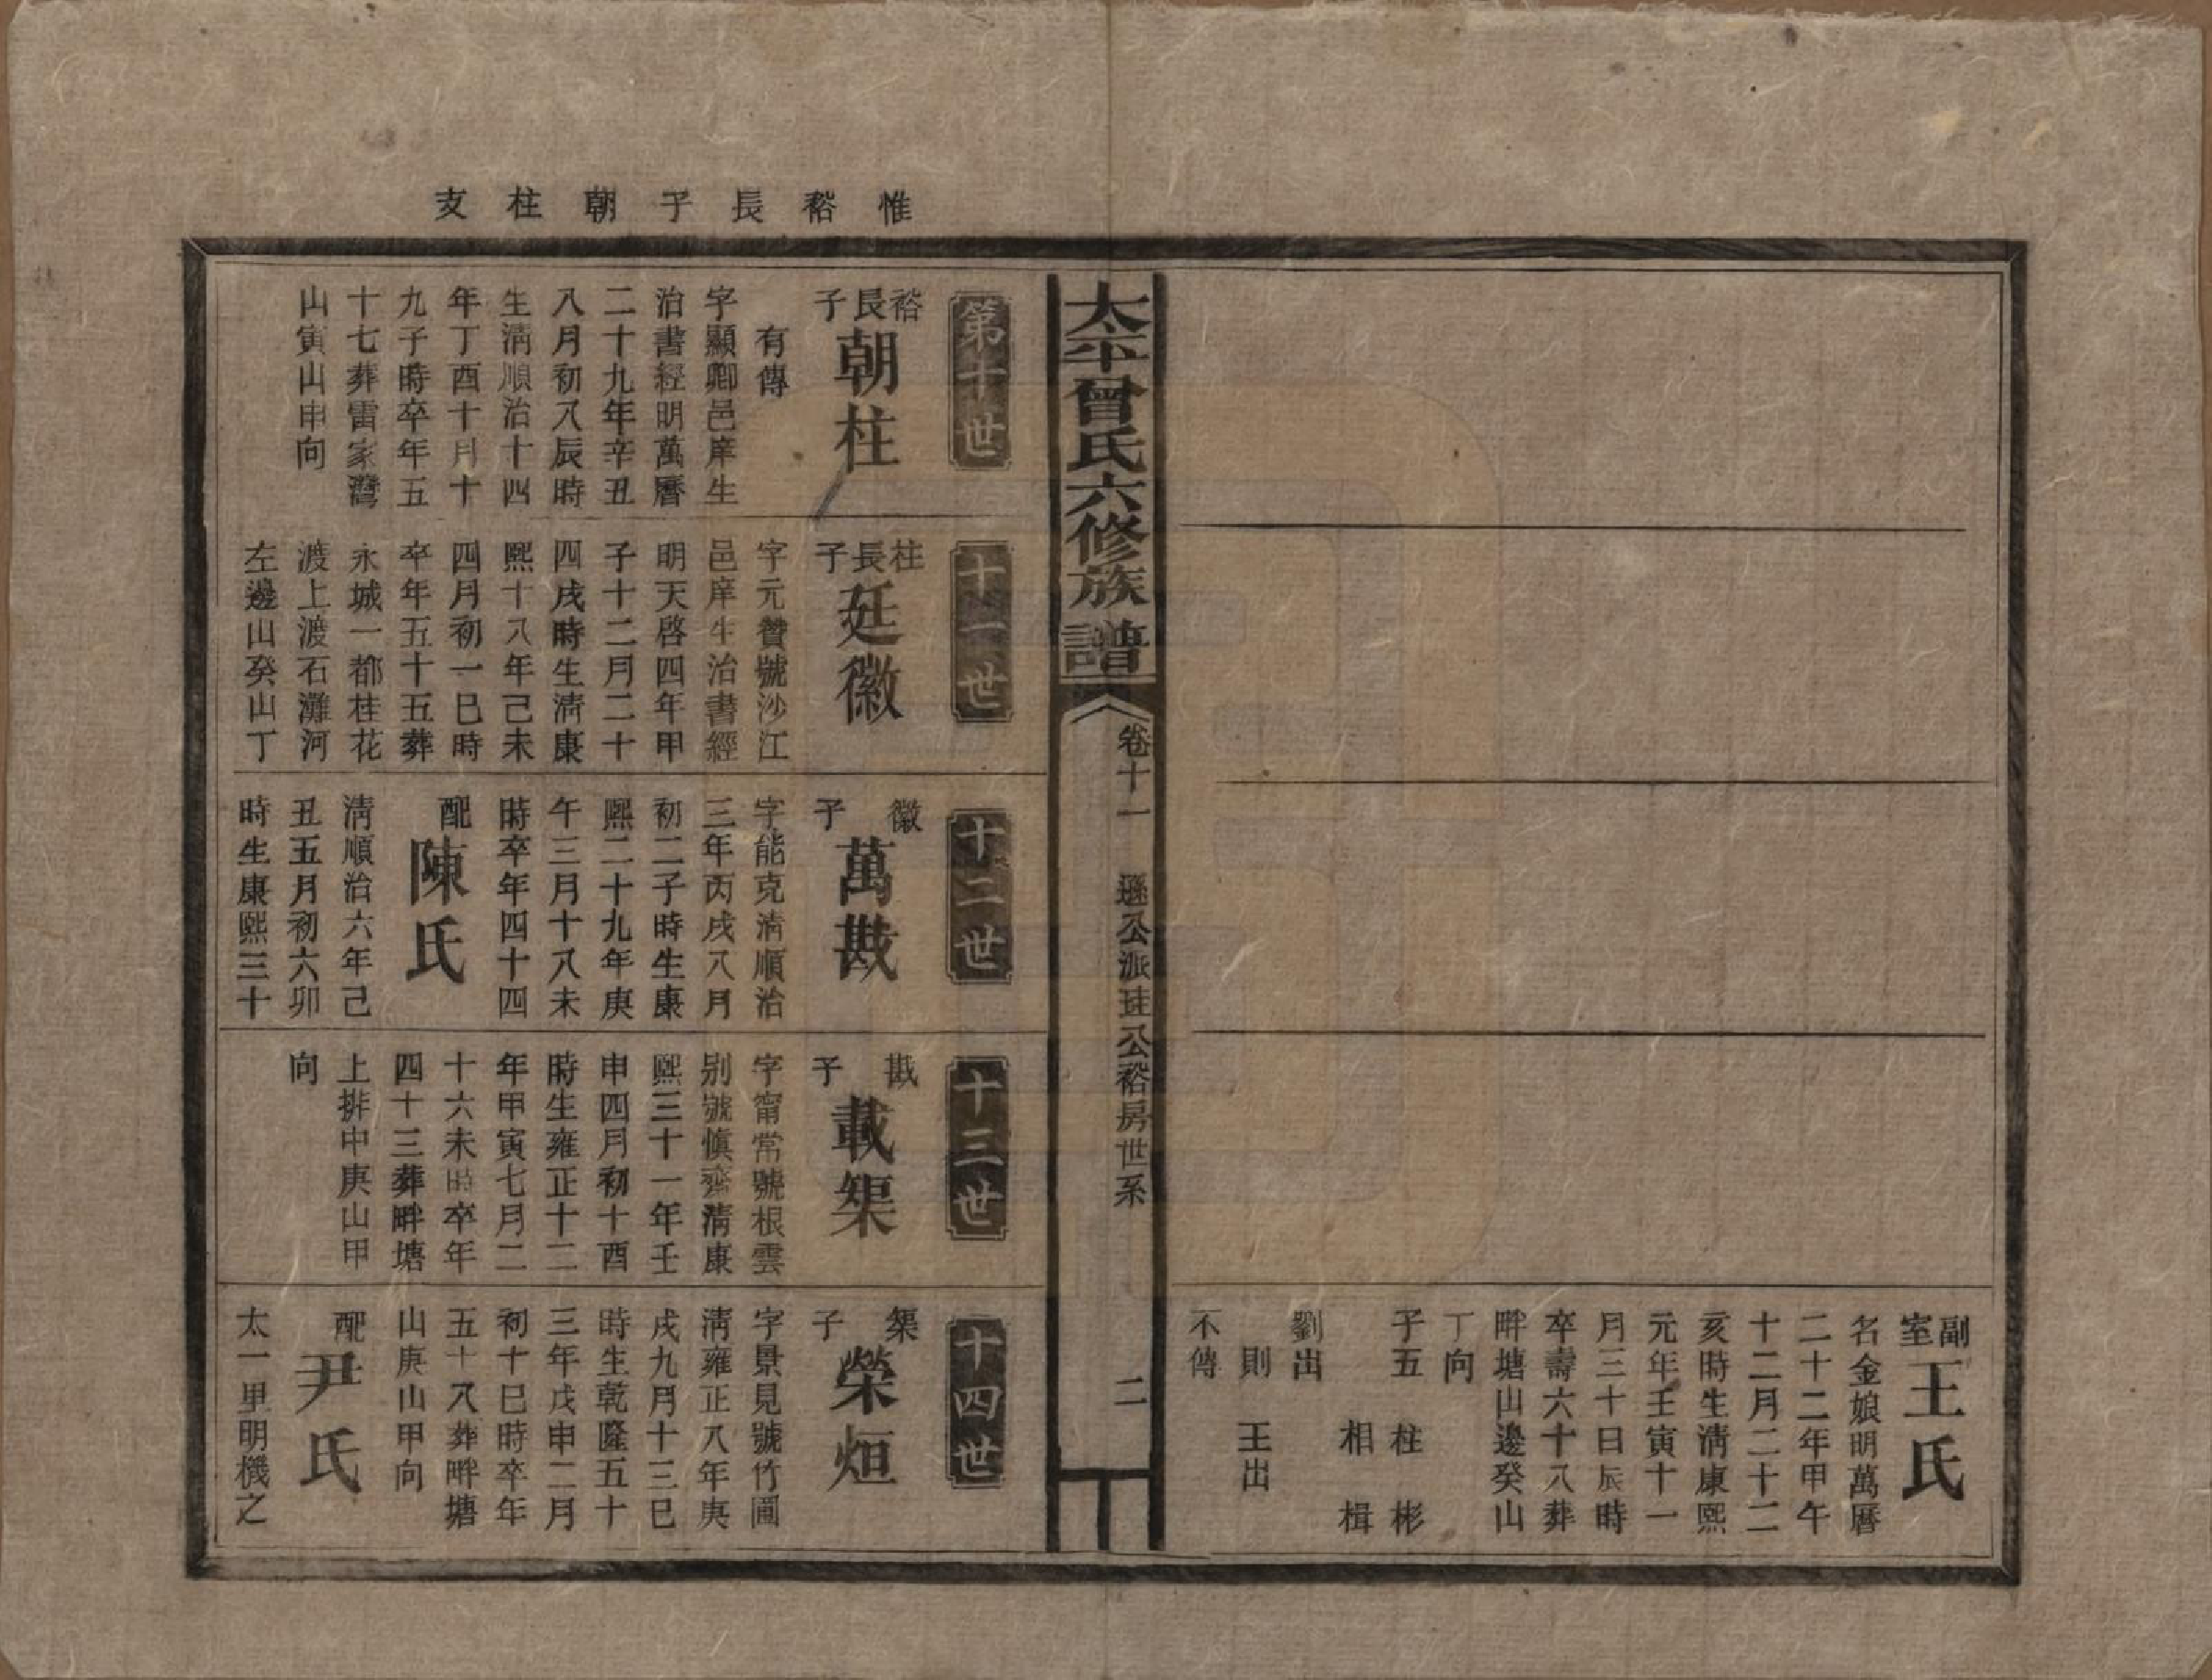 副室王氏
名金娘明萬曆
二十二年甲午
十二月二十二
亥時生清康熙
元年壬寅十一
月三十日辰時
卒壽六十八葬
畔塘山邊癸山
丁向
子五 柱 彬
相 楫
劉出
則 王出
不傳
太平曾氏六修族譜
卷十一 遜公派珪公裕房世系 二
惟裕長子朝柱支
第十世
裕長子朝柱
有傳
字顯卿邑庠生
治書經明萬曆
二十九年辛丑
八月初八辰時
生清順治十四
年丁酉十月十
九子時卒年五
十七葬雷家灣
山寅山申向
十一世
柱長子廷徽
字元贊號沙江
邑庠生治書經
明天啓四年甲
子十二月二十
四戌時生清康
熙十八年己未
四月初一巳時
卒年五十五葬
永城一都桂花
渡上渡石灘河
左邊山癸山丁
十二世
徽子萬戡
字能克清順治
三年丙戌八月
初二子時生康
熙二十九年庚
午三月十八未
時卒年四十四
配陳氏
清順治六年己
丑五月初六卯
時生康熙三十
十三世
戡子載榘
字甯常號根雲
别號愼齋清康
熙三十一年壬
申四月初十酉
時生雍正十二
年甲寅七月二
十六未時卒年
四十三葬畔塘
上排中庚山甲
向
十四世
榘子榮烜
字景見號竹圃
清雍正八年庚
戌九月十三巳
時生乾隆五十
三年戊申二月
初十巳時卒年
五十八葬畔塘
山庚山甲向
配尹氏
太一里明機之